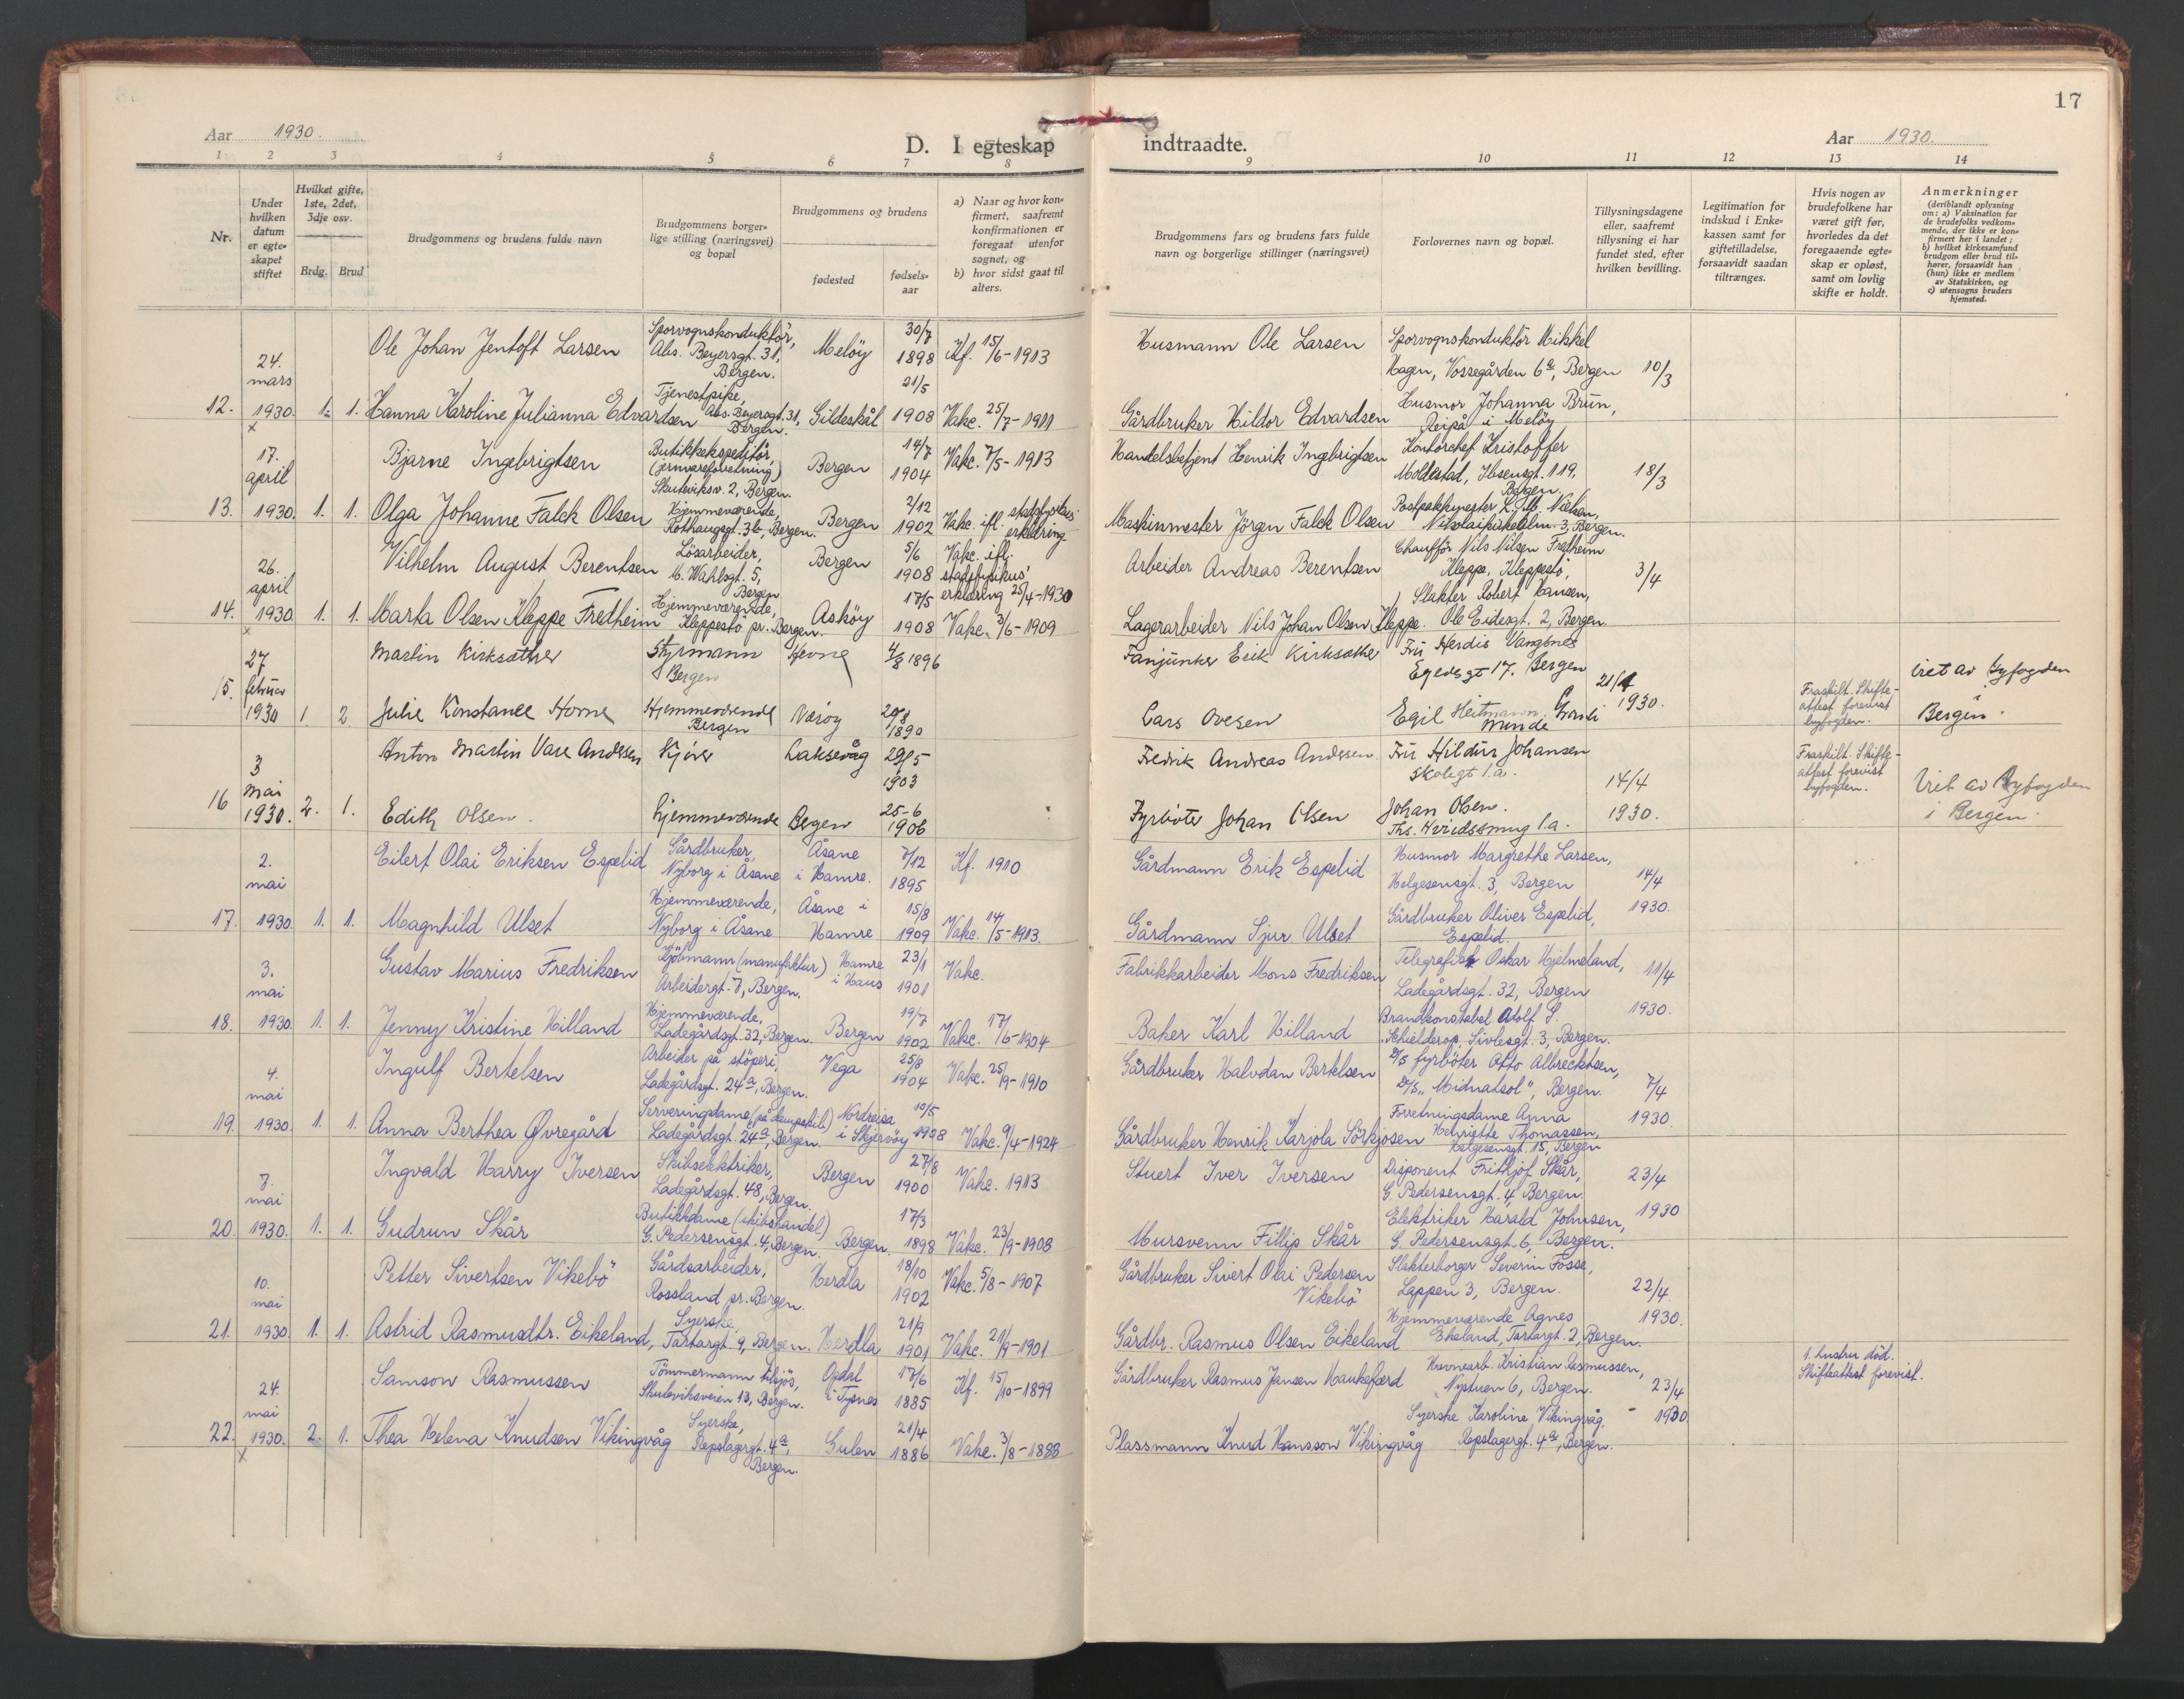 17
Aar 1930.
D. I egteskap indtraadte.
Aar 1930.
1 2 3 4 5 6 7 8 9 10 11 12 13 14
Nr.
Under hvilken datum er egteskapet stiftet
Hvilket gifte, 1ste, 2det, 3dje osv.
Brdg. Brud
Brudgommens og brudens fulde navn
Brudgommens borgerlige stilling (næringsvei) og bopæl
Brudgommens og brudens
fødested
fødselsaar
a) Naar og hvor konfirmert, saafremt konfirmationen er foregaat utenfor sognet, og
b) hvor sidst gaat til alters.
Brudgommens fars og brudens fars fulde navn og borgerlige stillinger (næringsvei)
Forlovernes navn og bopæl.
Tillysningsdagene eller, saafremt tillysning ei har fundet sted, efter hvilken bevilling.
Legitimation for indskud i Enkekassen samt for giftetilladelse, forsaavidt saadan tiltrænges.
Hvis nogen av brudefolkene har været gift før, hvorledes da det foregaaende egteskap er opløst, samt om lovlig skifte er holdt.
Anmerkninger (deriblandt oplysning om: a) Vaksination for de brudefolks vedkommende, der ikke er konfirmert her i landet; b) hvilket kirkesamfund brudgom eller brud tilhører, forsaavidt han (hun) ikke er medlem av Statskirken, og c) utensogns bruders hjemsted.
12. 24. mars 1930. x 1. 1.
Ole Johan Jentoft Larsen
Sporvognskonduktör, Abs. Beyersgt. 31, Bergen.
Melöy 30/7 1898 Kf. 15/6-1913
Husmann Ole Larsen
Sporvognskonduktör Mikkel Hagen, Vossegården 6a, Bergen
10/3
Hanna Karoline Julianna Edvardsen
Tjenestpike, Abs. Beyersgt. 31, Bergen.
Gildeskål 21/5 1908 Vakc. 25/7-1911
Gårdbruker Hildor Edvardsen
Husmor Johanna Brun, Reipå i Melöy
13. 17. april 1930. 1. 1.
Bjarne Ingebrigtsen
Butikkekspeditör, (jernvareforretning) Skuteviksv. 2, Bergen.
Bergen 14/7 1904 Vakc. 7/5-1913
Handelsbetjent Henrik Ingebrigtsen
Kontorchef Kristoffer Moldestad, Ibsensgt. 119, Bergen.
18/3
Olga Johanne Falck Olsen
Hjemmeværende, Rothaugsgt. 3b, Bergen.
Bergen 2/12 1902 Vakc. ifl. stadsfysikus' erklæring
Maskinmester Jörgen Falck Olsen
Postpakkmester L. M. Nielsen, Nikolaikirkealm. 3, Bergen.
14. 26. april 1930. x 1. 1.
Vilhelm August Berentsen
Lösarbeider, M. Wahlsgt. 5, Bergen
Bergen 5/6 1908 Vakc. ifl. stadsfysikus' erklæring 25/4-1930
Arbeider Andreas Berentsen
Chaufför Nils Nilsen Fredheim Kleppe, Kleppestö,
3/4
Marta Olsen Kleppe Fredheim
Hjemmeværende, Kleppestö pr. Bergen.
Asköy 17/5 1908 Vakc. 3/6-1909
Lagerarbeider Nils Johan Olsen Kleppe.
Slakter Robert Hansen, Ole Eidesgt. 2, Bergen.
15. 27 februar 1930 1. 2.
Martin Kirksæther
Styrmann Bergen
Hevne 4/8 1896
Fanjunker Erik Kirksæther
Fru Herdis Vangsnes Egedsgt 17. Bergen
21/1 1930.
Julie Konstance Horne
Hjemmeværende Bergen
Næröy 29/8 1890
Lars Ovesen
Egil Heitmann
Fraskilt. Skifteattest forevist byfogden.
Viet av Byfogden i Bergen.
16 3 mai 1930. 2. 1.
Anton Martin Vare Andersen
Kjörer
Laksevåg 29/5 1903
Fredrik Andreas Andersen
Fru Hildur Johansen Skolegt 1.a.
14/4 1930.
Edith Olsen.
Hjemmeværende
Bergen 25-6 1906
Fyrböter Johan Olsen
Johan Olsen. Ths. Hviidssmug 1.a.
Fraskilt. Skifteattest forevist byfogden.
Viet av Byfogden i Bergen.
17. 2. mai 1930. 1. 1.
Eilert Olai Eriksen Espelid
Gårdbruker, Nyborg i Åsane
Åsane i Hamre. 7/12 1895 Kf. 1910
Gårdmann Erik Espelid
Husmor Margrethe Larsen, Helgesensgt. 3, Bergen
14/4 1930.
Magnhild Ulset
Hjemmeværende, Nyborg i Åsane
Åsane i Hamre 15/8 1909 Vakc. 14/5-1913.
Gårdmann Sjur Ulset
Gårdbruker Oliver Espelid, Espelid.
18. 3. mai 1930. 1. 1.
Gustav Marius Fredriksen
Kjöbmann (manufaktur) Arbeidergt. 7, Bergen.
Hamre i Haus 23/1 1901 Vakc.
Fabrikkarbeider Mons Fredriksen
Telegrafist Oskar Hjelmeland, Ladegårdsgt. 32, Bergen
11/4 1930.
Jenny Kristine Hilland
Hjemmeværende, Ladegårdsgt. 32, Bergen.
Bergen 19/7 1902 Vakc. 17/6-1904
Baker Karl Hilland
Brandkonstabel Adolf S. Schielderop, Sivlesgt. 3, Bergen.
19. 4. mai 1930. 1. 1.
Ingulf Bertelsen
Arbeider på stöperi, Ladegårdsgt. 24a, Bergen.
Vega 25/8 1904 Vakc. 25/9-1910
Gårdbruker Halvdan Bertelsen
fyrböter Otto Albrecktsen, D/S. "Midnatsol", Bergen.
7/4 1930.
Anna Berthea Øvregård
Serveringsdame (på dampskib) Ladegårdsgt. 24a, Bergen.
Nordreisa i Skjervöy 10/5 1908 Vakc. 9/4-1924
Gårdbruker Henrik Karjola Sörkjosen
Forretningsdame Anna Henriette Thomassen, Helgesensgt. 15, Bergen
20. 7. mai 1930. 1. 1.
Ingvald Harry Iversen
Skibselektriker, Ladegårdsgt. 48, Bergen.
Bergen 27/8 1900 Vakc. 1913
Stuert Iver Iversen
Disponent Frithjof Skår, G. Pedersensgt. 4, Bergen.
23/4 1930
Gudrun Skår
Butikkdame (skibshandel) G. Pedersensgt. 4, Bergen.
Bergen. 17/3 1898 Vakc. 23/9-1908
Mursvenn Fillip Skår
Elektriker Harald Johnsen, G. Pedersensgt. 6, Bergen.
21. 10. mai 1930. 1. 1.
Petter Sivertsen Vikebö
Gårdsarbeider, Rossland pr. Bergen.
Herdla 18/10 1902 Vakc. 5/8-1907
Gårdbruker Sivert Olai Pedersen Vikebö
Slakterborger Severin Fosse, Lappen 3, Bergen.
22/4 1930.
Astrid Rasmusdtr. Eikeland,
Syerske, Tartargt. 9, Bergen.
Herdla 21/9 1901 Vakc. 21/9-1901
Gårdbr. Rasmus Olsen Eikeland
Hjemmeværende Agnes Eikeland, Tartargt. 2, Bergen.
22. 24. mai 1930. x 2. 1.
Samson Rasmussen
Tömmermann tilsjös, Skuteviksveien 13, Bergen.
Opdal i Tysnes 17/6 1885 Kf. 15/10-1899
Gårdbruker Rasmus Jansen Haukefærd
Havnearb. Kristian Rasmussen, Nystuen 6, Bergen.
23/4 1930.
1. hustru död. Skifteattest forevist.
Thea Helena Knudsen Vikingvåg
Syerske, Repslagergt. 4a, Bergen.
Gulen 21/4 1886 Vakc. 3/8-1888
Plassmann Knud Hansson Vikingvåg
Syerske Karoline Vikingvåg. Repslagergt. 4a, Bergen.